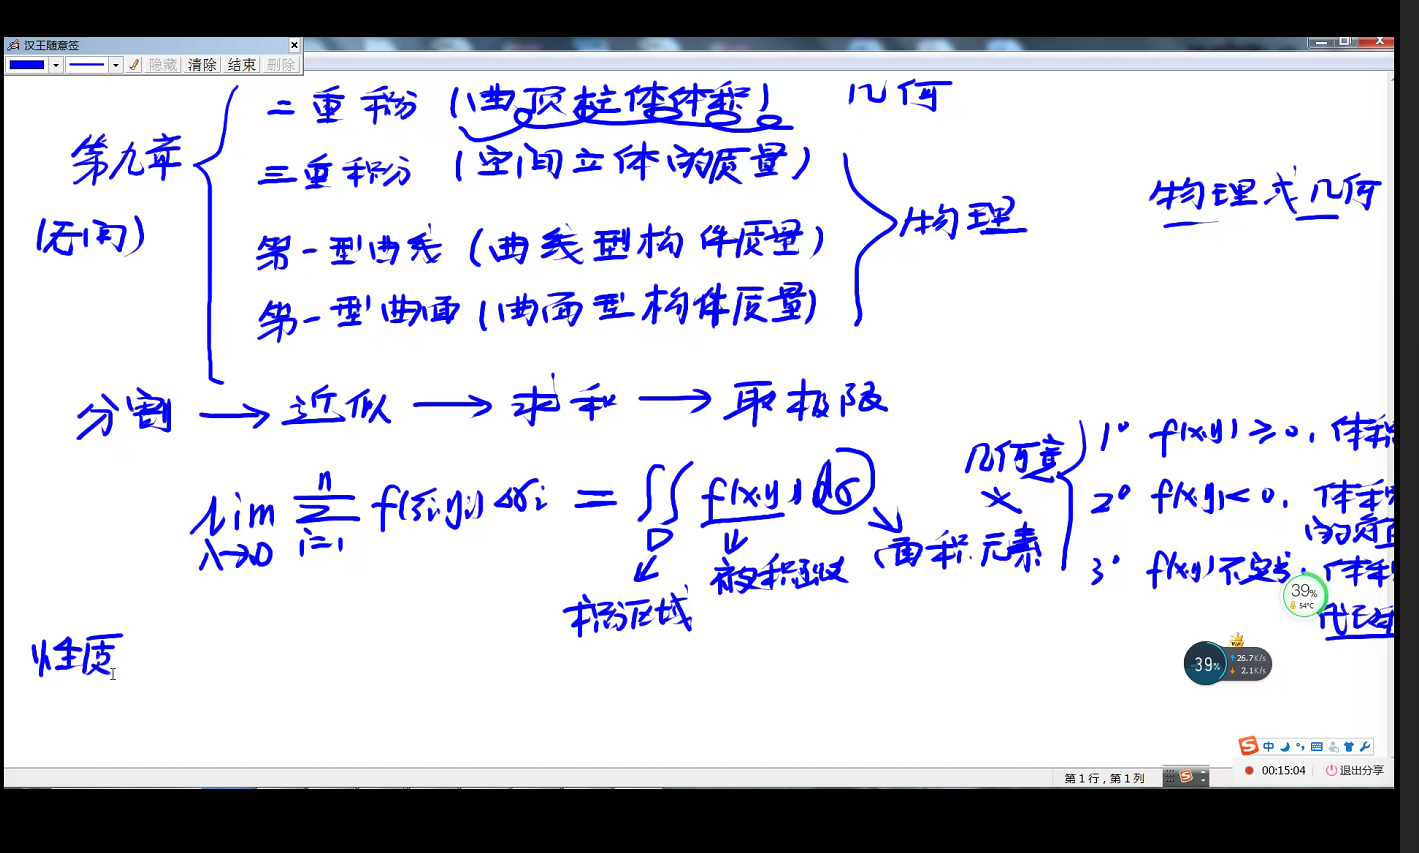 汉王随意签
隐藏 清除 结束 删除
二重积分 (曲顶柱体体积) 几何
第九章
三重积分 (空间立体的质量)
物理或几何
(无向)
第一型曲线 (曲线型构件质量)
物理
第一型曲面 (曲面型构件质量)
分割 → 近似 → 求和 → 取极限
lim λ→0 ∑ i=1 n f(ξi,yi)Δσi = ∬ D f(x,y)dσ
积分区域
被积函数
面积元素
几何意义
1° f(x,y)≥0, 体积
2° f(x,y)<0, 体积
的负值
3° f(x,y)不定号, 体积
代数和
性质
39%
54°C
39%
26.7K/s
2.1K/s
中
第1行，第1列
00:15:04 退出分享